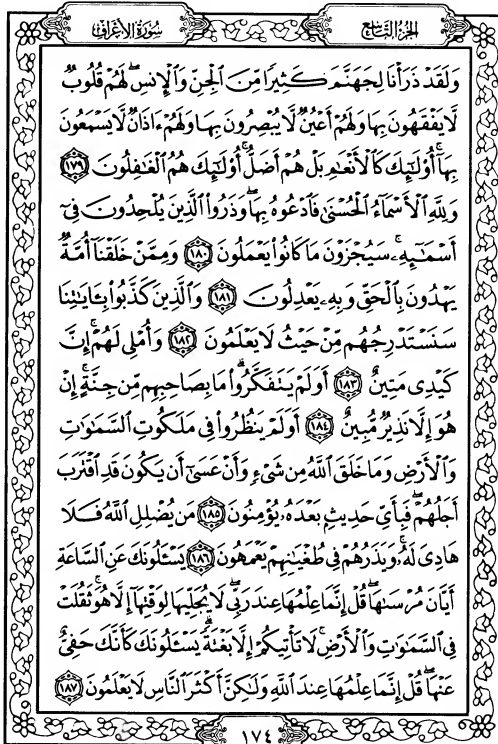 الجزء التاسع
سورة الأعراف
وَلَقَدْ ذَرَأْنَا لِجَهَنَّمَ كَثِيرًا مِّنَ ٱلْجِنِّ وَٱلْإِنسِۖ لَهُمْ قُلُوبٌ
لَّا يَفْقَهُونَ بِهَا وَلَهُمْ أَعْيُنٌ لَّا يُبْصِرُونَ بِهَا وَلَهُمْ ءَاذَانٌ لَّا يَسْمَعُونَ
بِهَآۚ أُو۟لَٰٓئِكَ كَٱلْأَنْعَٰمِ بَلْ هُمْ أَضَلُّۚ أُو۟لَٰٓئِكَ هُمُ ٱلْغَٰفِلُونَ ١٧٩
وَلِلَّهِ ٱلْأَسْمَآءُ ٱلْحُسْنَىٰ فَٱدْعُوهُ بِهَاۖ وَذَرُوا۟ ٱلَّذِينَ يُلْحِدُونَ فِىٓ
أَسْمَٰٓئِهِۦۚ سَيُجْزَوْنَ مَا كَانُوا۟ يَعْمَلُونَ ١٨٠ وَمِمَّنْ خَلَقْنَآ أُمَّةٌ
يَهْدُونَ بِٱلْحَقِّ وَبِهِۦ يَعْدِلُونَ ١٨١ وَٱلَّذِينَ كَذَّبُوا۟ بِـَٔايَٰتِنَا
سَنَسْتَدْرِجُهُم مِّنْ حَيْثُ لَا يَعْلَمُونَ ١٨٢ وَأُمْلِى لَهُمْۚ إِنَّ
كَيْدِى مَتِينٌ ١٨٣ أَوَلَمْ يَتَفَكَّرُوا۟ۗ مَا بِصَاحِبِهِم مِّن جِنَّةٍۚ إِنْ
هُوَ إِلَّا نَذِيرٌ مُّبِينٌ ١٨٤ أَوَلَمْ يَنظُرُوا۟ فِى مَلَكُوتِ ٱلسَّمَٰوَٰتِ
وَٱلْأَرْضِ وَمَا خَلَقَ ٱللَّهُ مِن شَىْءٍ وَأَنْ عَسَىٰٓ أَن يَكُونَ قَدِ ٱقْتَرَبَ
أَجَلُهُمْۖ فَبِأَىِّ حَدِيثٍۭ بَعْدَهُۥ يُؤْمِنُونَ ١٨٥ مَن يُضْلِلِ ٱللَّهُ فَلَا
هَادِىَ لَهُۥۚ وَيَذَرُهُمْ فِى طُغْيَٰنِهِمْ يَعْمَهُونَ ١٨٦ يَسْـَٔلُونَكَ عَنِ ٱلسَّاعَةِ
أَيَّانَ مُرْسَىٰهَاۖ قُلْ إِنَّمَا عِلْمُهَا عِندَ رَبِّىۖ لَا يُجَلِّيهَا لِوَقْتِهَآ إِلَّا هُوَۚ ثَقُلَتْ
فِى ٱلسَّمَٰوَٰتِ وَٱلْأَرْضِۚ لَا تَأْتِيكُمْ إِلَّا بَغْتَةًۗ يَسْـَٔلُونَكَ كَأَنَّكَ حَفِىٌّ
عَنْهَاۖ قُلْ إِنَّمَا عِلْمُهَا عِندَ ٱللَّهِ وَلَٰكِنَّ أَكْثَرَ ٱلنَّاسِ لَا يَعْلَمُونَ ١٨٧
١٧٤